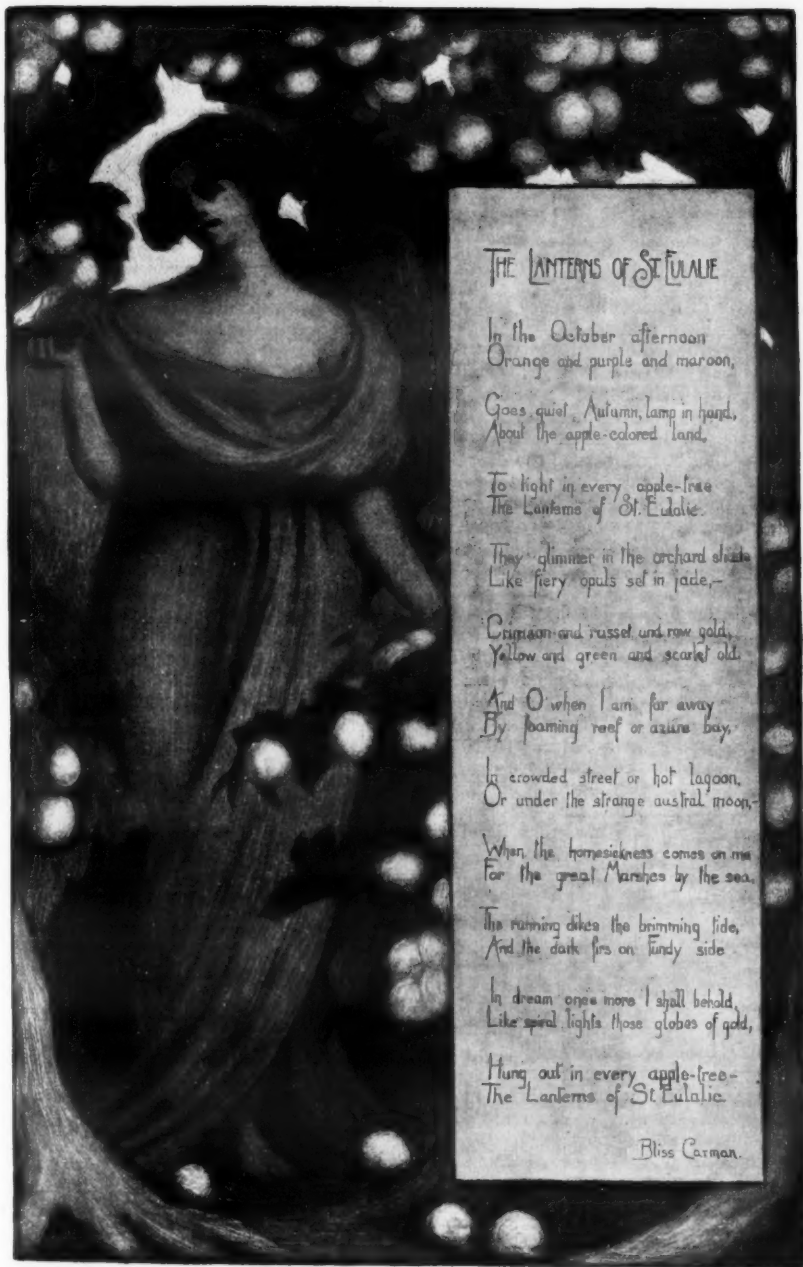 THE LANTERNS OF ST EULALIE
In the October afternoon
Orange and purple and maroon,
Goes quiet Autumn, lamp in hand,
About the apple-colored land,
To light in every apple-tree
The Lanterns of St. Eulalie.
They glimmer in the orchard shade
Like fiery opals set in jade,—
Crimson and russet and raw gold,
Yellow and green and scarlet old.
And O when I am far away
By foaming reef or azure bay,
In crowded street or hot lagoon,
Or under the strange austral moon,—
When the homesickness comes on me
For the great Marshes by the sea,
The running dikes the brimming tide,
And the dark firs on Fundy side
In dream once more I shall behold,
Like spiral lights those globes of gold,
Hung out in every apple-tree—
The Lanterns of St Eulalie.
Bliss Carman.